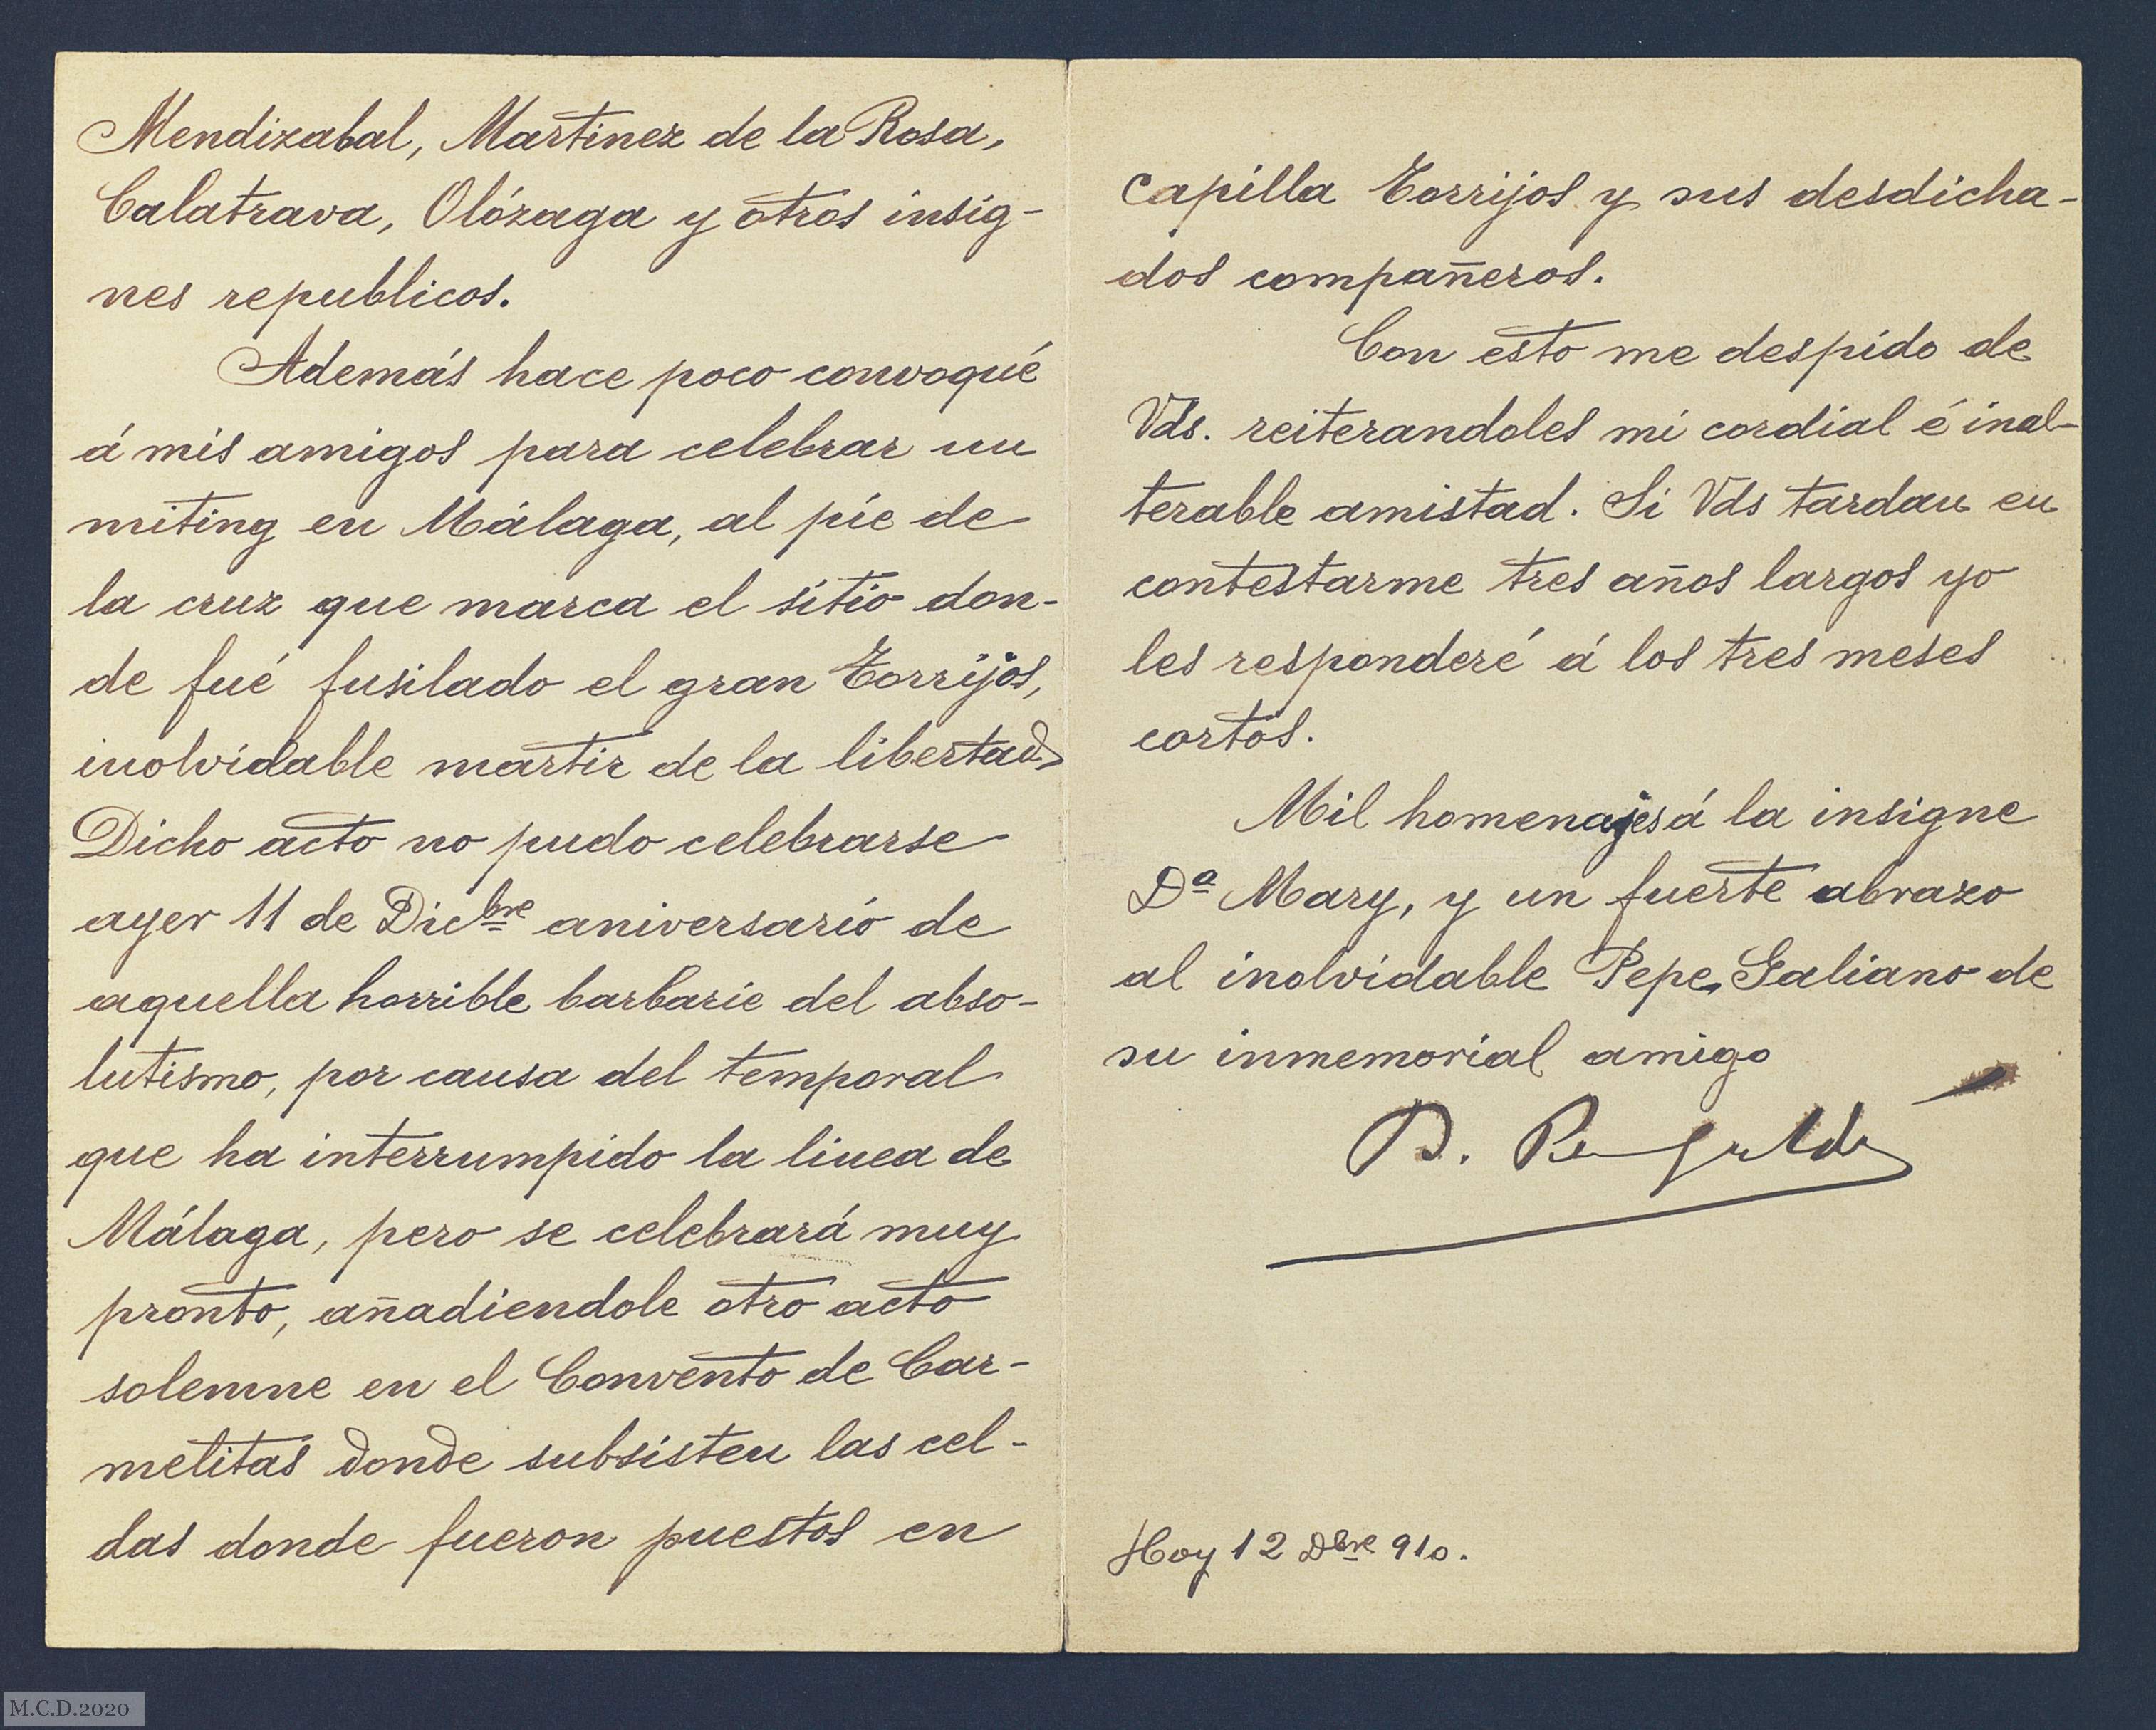 Mendizabal, Martinez de la Rosa,
Calatrava, Olózaga y otros insig-
nes republicos.
Además hace poco convoqué
á mis amigos para celebrar un
miting en Málaga, al pie de
la cruz que marca el sitio don-
de fué fusilado el gran Torrijos,
inolvidable martir de la libertad.
Dicho acto no pudo celebrarse
ayer 11 de Dicbre aniversario de
aquella horrible barbarie del abso-
lutismo, por causa del temporal
que ha interrumpido la linea de
Málaga, pero se celebrará muy
pronto, añadiendole otro acto
solemne en el Convento de Car-
melitas donde subsisten las cel-
das donde fueron puestos en
capilla Torrijos y sus desdicha-
dos compañeros.
Con esto me despido de
Vds. reiterandoles mi cordial é inal-
terable amistad. Si Vds tardan en
contestarme tres años largos yo
les responderé á los tres meses
cortos.
Mil homenajes á la insigne
Dª Mary, y un fuerte abrazo
al inolvidable Pepe Galiano de
su inmemorial amigo
B. Perez Galdós
Hoy 12 Dbre 910.
M.C.D.2020